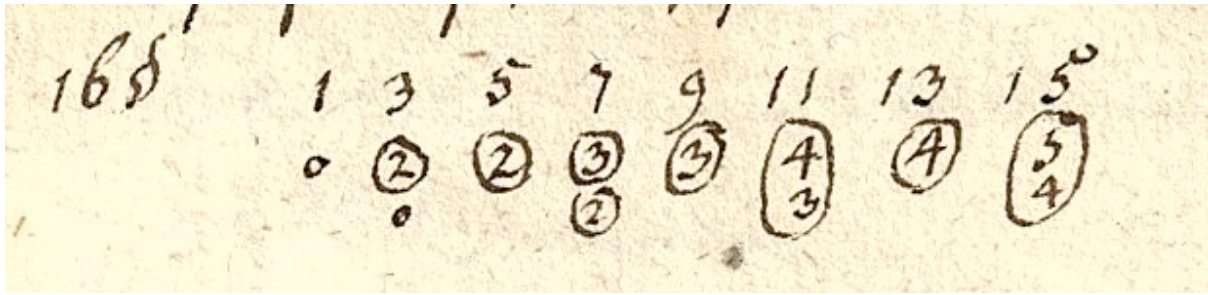 16 1 3 5 7 9 11 13 15
0 2 2 3 3 4 4 5
0 2 3 4